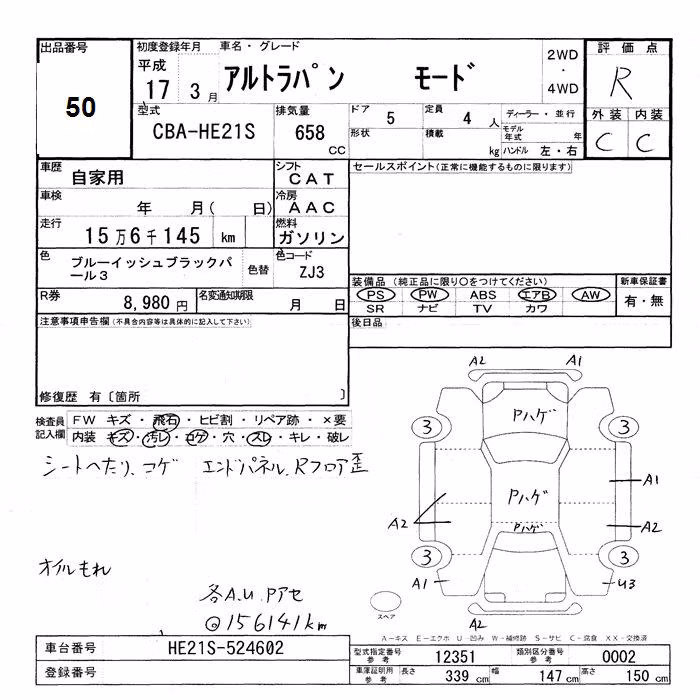 出品番号
50
初度登録年月 車名・グレード
平成 17 3月 アルトラパン モード
2WD
・
4WD
評価点
R
外装 内装
C C
型式 CBA-HE21S
排気量 658 CC
ドア 5 定員 4 人
形状 積載 kg
ディーラー・並行
モデル年式 年
ハンドル 左・右
車歴 自家用
シフト CAT
車検 年 月( 日)
冷房 AAC
走行 15万6千145 km
燃料 ガソリン
色 ブルーイッシュブラックパール3 色替
色コード ZJ3
R券 8,980円
名変通知期限 月 日
セールスポイント(正常に機能するものに限ります)
装備品 (純正品に限り○をつけてください)
PS PW ABS エアB AW
SR ナビ TV カワ
新車保証書
有・無
後日品
注意事項申告欄(不具合内容等は具体的に記入して下さい)
修復歴 有〔箇所 〕
検査員記入欄
FW キズ・飛石・ヒビ割・リペア跡・×要
内装 キズ・汚レ・コゲ・穴・スレ・キレ・破レ
シートへたり、コゲ エンドパネル、Rフロア歪
オイルもれ
各A.U.Pアセ
◎156141km
A2 A1
Pハゲ
3 3
Pハゲ
A1
A2 A2
Pハゲ
3 3
A1 U3
A2
スペア
A-キズ E-エクボ U-凹み W-補修跡 S-サビ C-腐食 XX-交換済
車台番号 HE21S-524602
登録番号
型式指定番号 参考 12351
類別区分番号 参考 0002
車庫証明用 参考 長さ 339 cm 幅 147 cm 高さ 150 cm